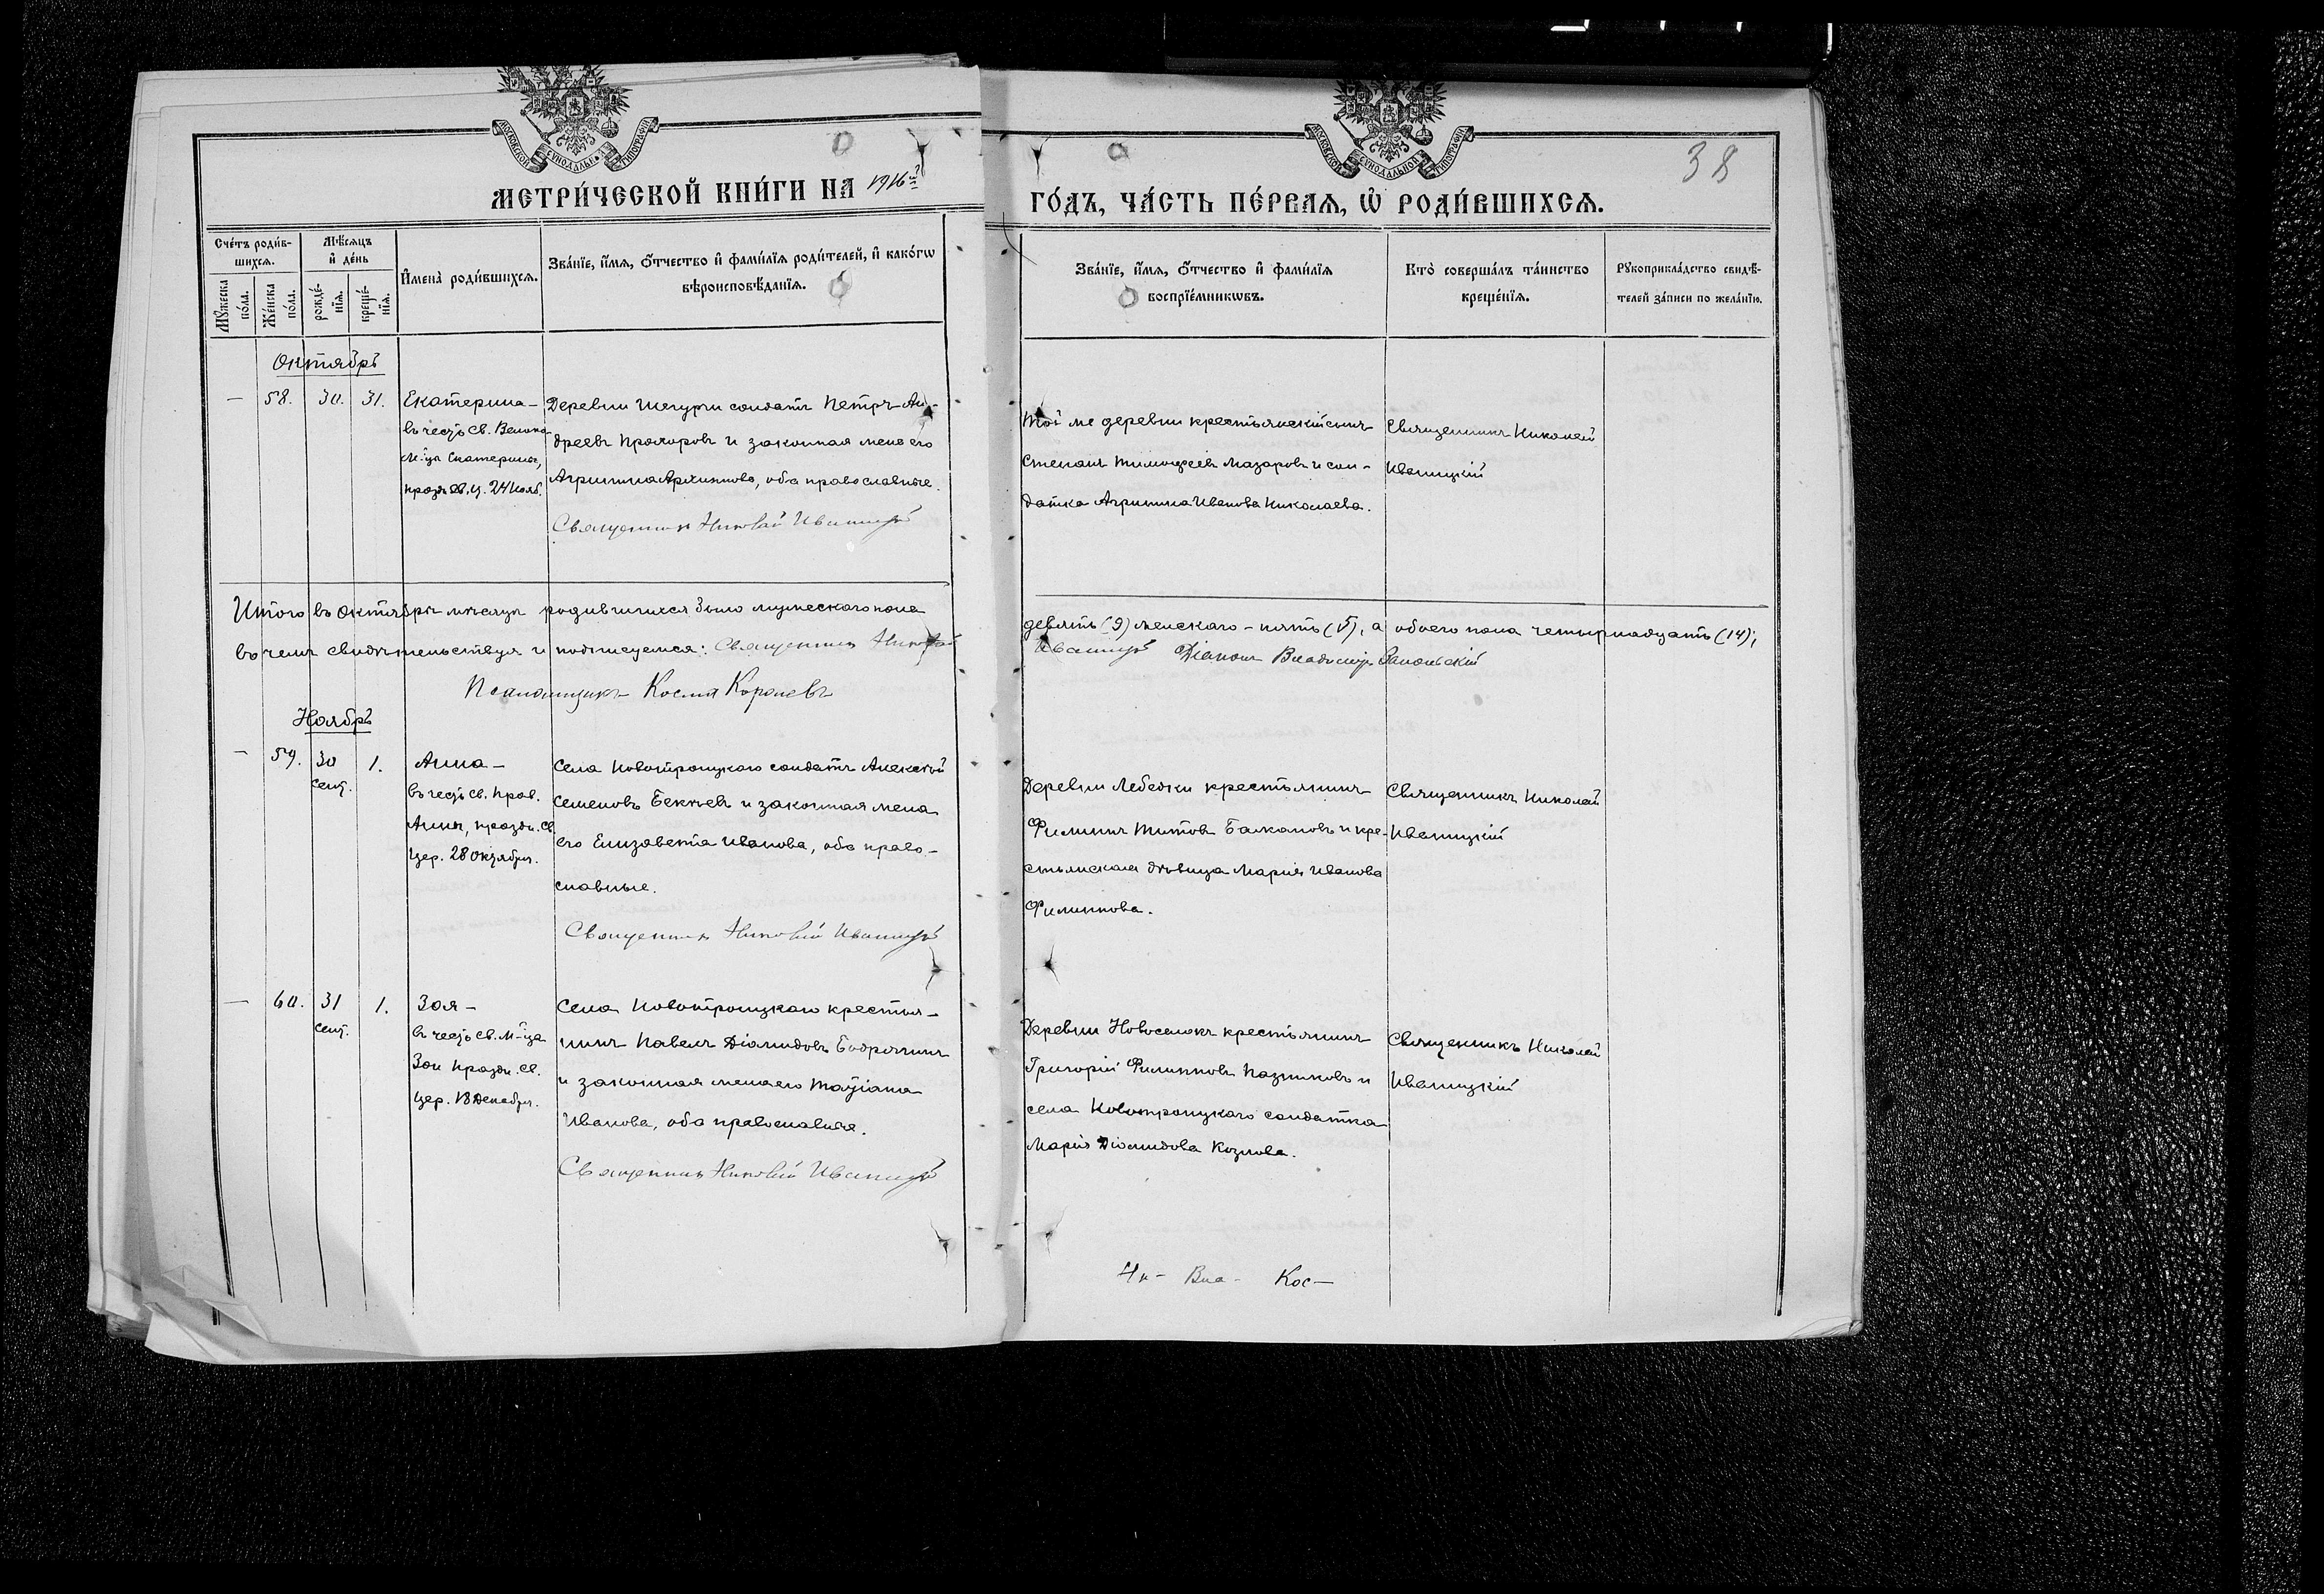 МОСКОВСКОЙ СѴНОДАЛЬНОЙ ТИПОГРАФІИ
МОСКОВСКОЙ СѴНОДАЛЬНОЙ ТИПОГРАФІИ
38
МЕТРИ́ЧЕСКОЙ КНИ́ГИ НА 1916й
ГО́ДЪ, ЧА́СТЬ ПЕ́РВАѦ, Ѡ҆ РОДИ́ВШИХСѦ.
Сче́тъ роди́в-
шихсѧ.
Мꙋ́жеска по́ла.
Же́нска по́ла.
Мѣ́сѧцъ
и҆ де́нь
рожде́-
нїѧ.
креще́-
нїѧ.
И҆мена̀ роди́вшихсѧ.
Зва́нїе, и҆́мѧ, ѻ҆́тчество и҆ фами́лїѧ роди́телей, и҆ како́гѡ
вѣроисповѣ́данїѧ.
Зва́нїе, и҆́мѧ, ѻ҆́тчество и҆ фами́лїѧ
воспрїе́мникѡвъ.
Кто̀ соверша́лъ та́инство
креще́нїѧ.
Рꙋкоприкла́дство свидѣ́-
телей за́писи по жела́нїю.
Октябрь
— 58. 30. 31.
Екатерина —
въ честь св. Велико
м-ца Екатерины,
празд. св. ц. 24 Нояб.
Деревни солдатъ Петръ Ан-
дреевъ Прохоровъ и законная жена его
Агриппина Архиппова, оба православные.
Священникъ Николай Иваницкій
Той же деревни крестьянскій сынъ
Степанъ Тимофеевъ Мазаровъ и сол-
датка Агриппина Иванова Николаева.
Священникъ Николай
Иваницкій
Итого въ октябрѣ мѣсяцѣ родившихся было мужескаго пола
девять (9) женскаго – пять (5), а обоего пола четырнадцать (14);
въ чемъ свидѣтельствуя и подписуемся: Священникъ Николай
Иваницкій Діаконъ Владимір
Псаломщикъ Косма Королевъ
Ноябрь
— 59. 30 1.
Сент.
Анна —
въ честь св. прав.
Анны, праздн. св.
Цер. 28 октября.
Села Новотроицкаго солдатъ Алексѣй
Семеновъ Беккевъ и законная жена
его Елизавета Иванова, оба право-
славные.
Священникъ Николай Иваницкій
Деревни Лебедки крестьянинъ
Филиппъ Титовъ Балкановъ и кре-
стьянская дѣвица Марія Иванова
Филиппова.
Священникъ Николай
Иваницкій
— 60. 31 1.
Сент.
Зоя —
въ честь св. м-ца
Зои праздн. св.
Цер. 18 Декабря.
Села Новотроицкаго крестья-
нинъ Павелъ Діомидовъ Бодрягинъ
и законная жена его Татіана
Иванова, оба православные.
Священникъ Николай Иваницкій
Деревни Новоселокъ крестьянинъ
Григорій Филипповъ Казликовъ и
села Новотроицкаго солдатка
Марія Діомидова Козлова.
Священникъ Николай
Иваницкій
Ни- Вла- Кос-